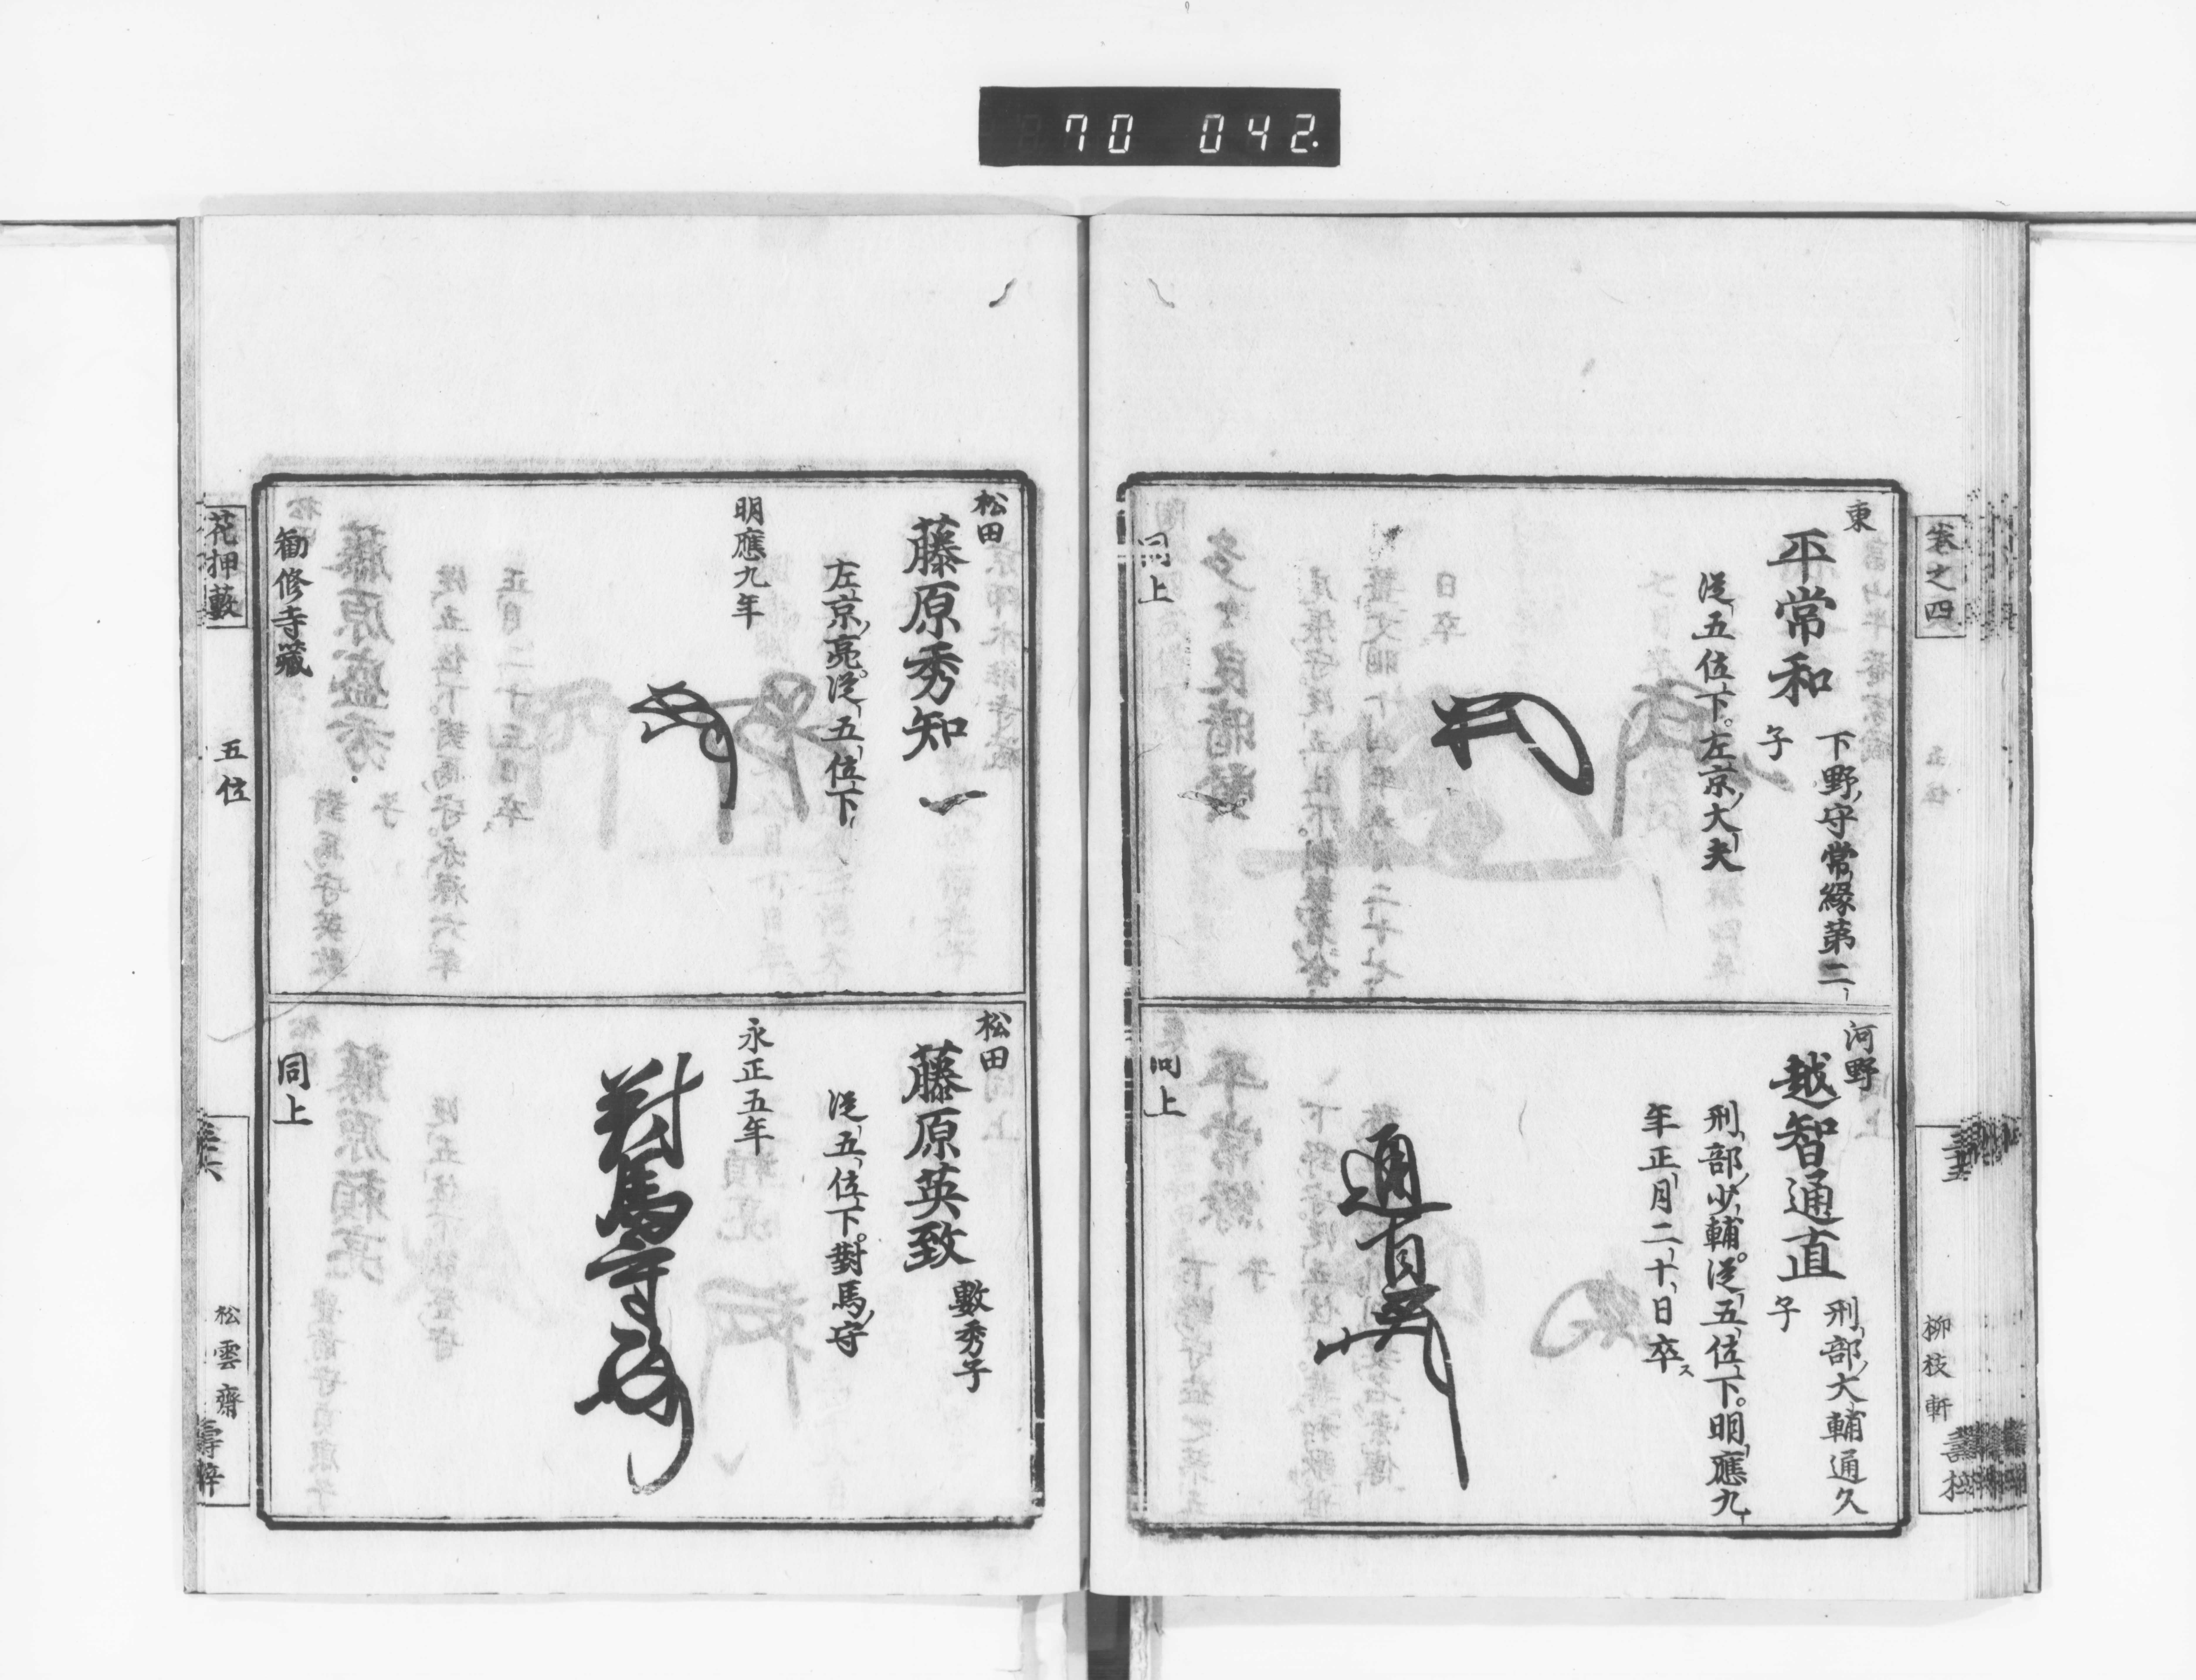 70 042.
巻之四
柳枝軒
東
平常和
下野守常緣第二
子
従五位下。左京大夫
同上
河野
越智通直
刑部大輔通久
子
刑部少輔。従五位下。明應九
年正月二十日卒ス
通直
同上
松田
藤原秀知
左京亮。従五位下
明應九年
勸修寺藏
松田
藤原英致
數秀子
従五位下。對馬守
永正五年
對馬守
同上
花押藪
五位
松雲齋